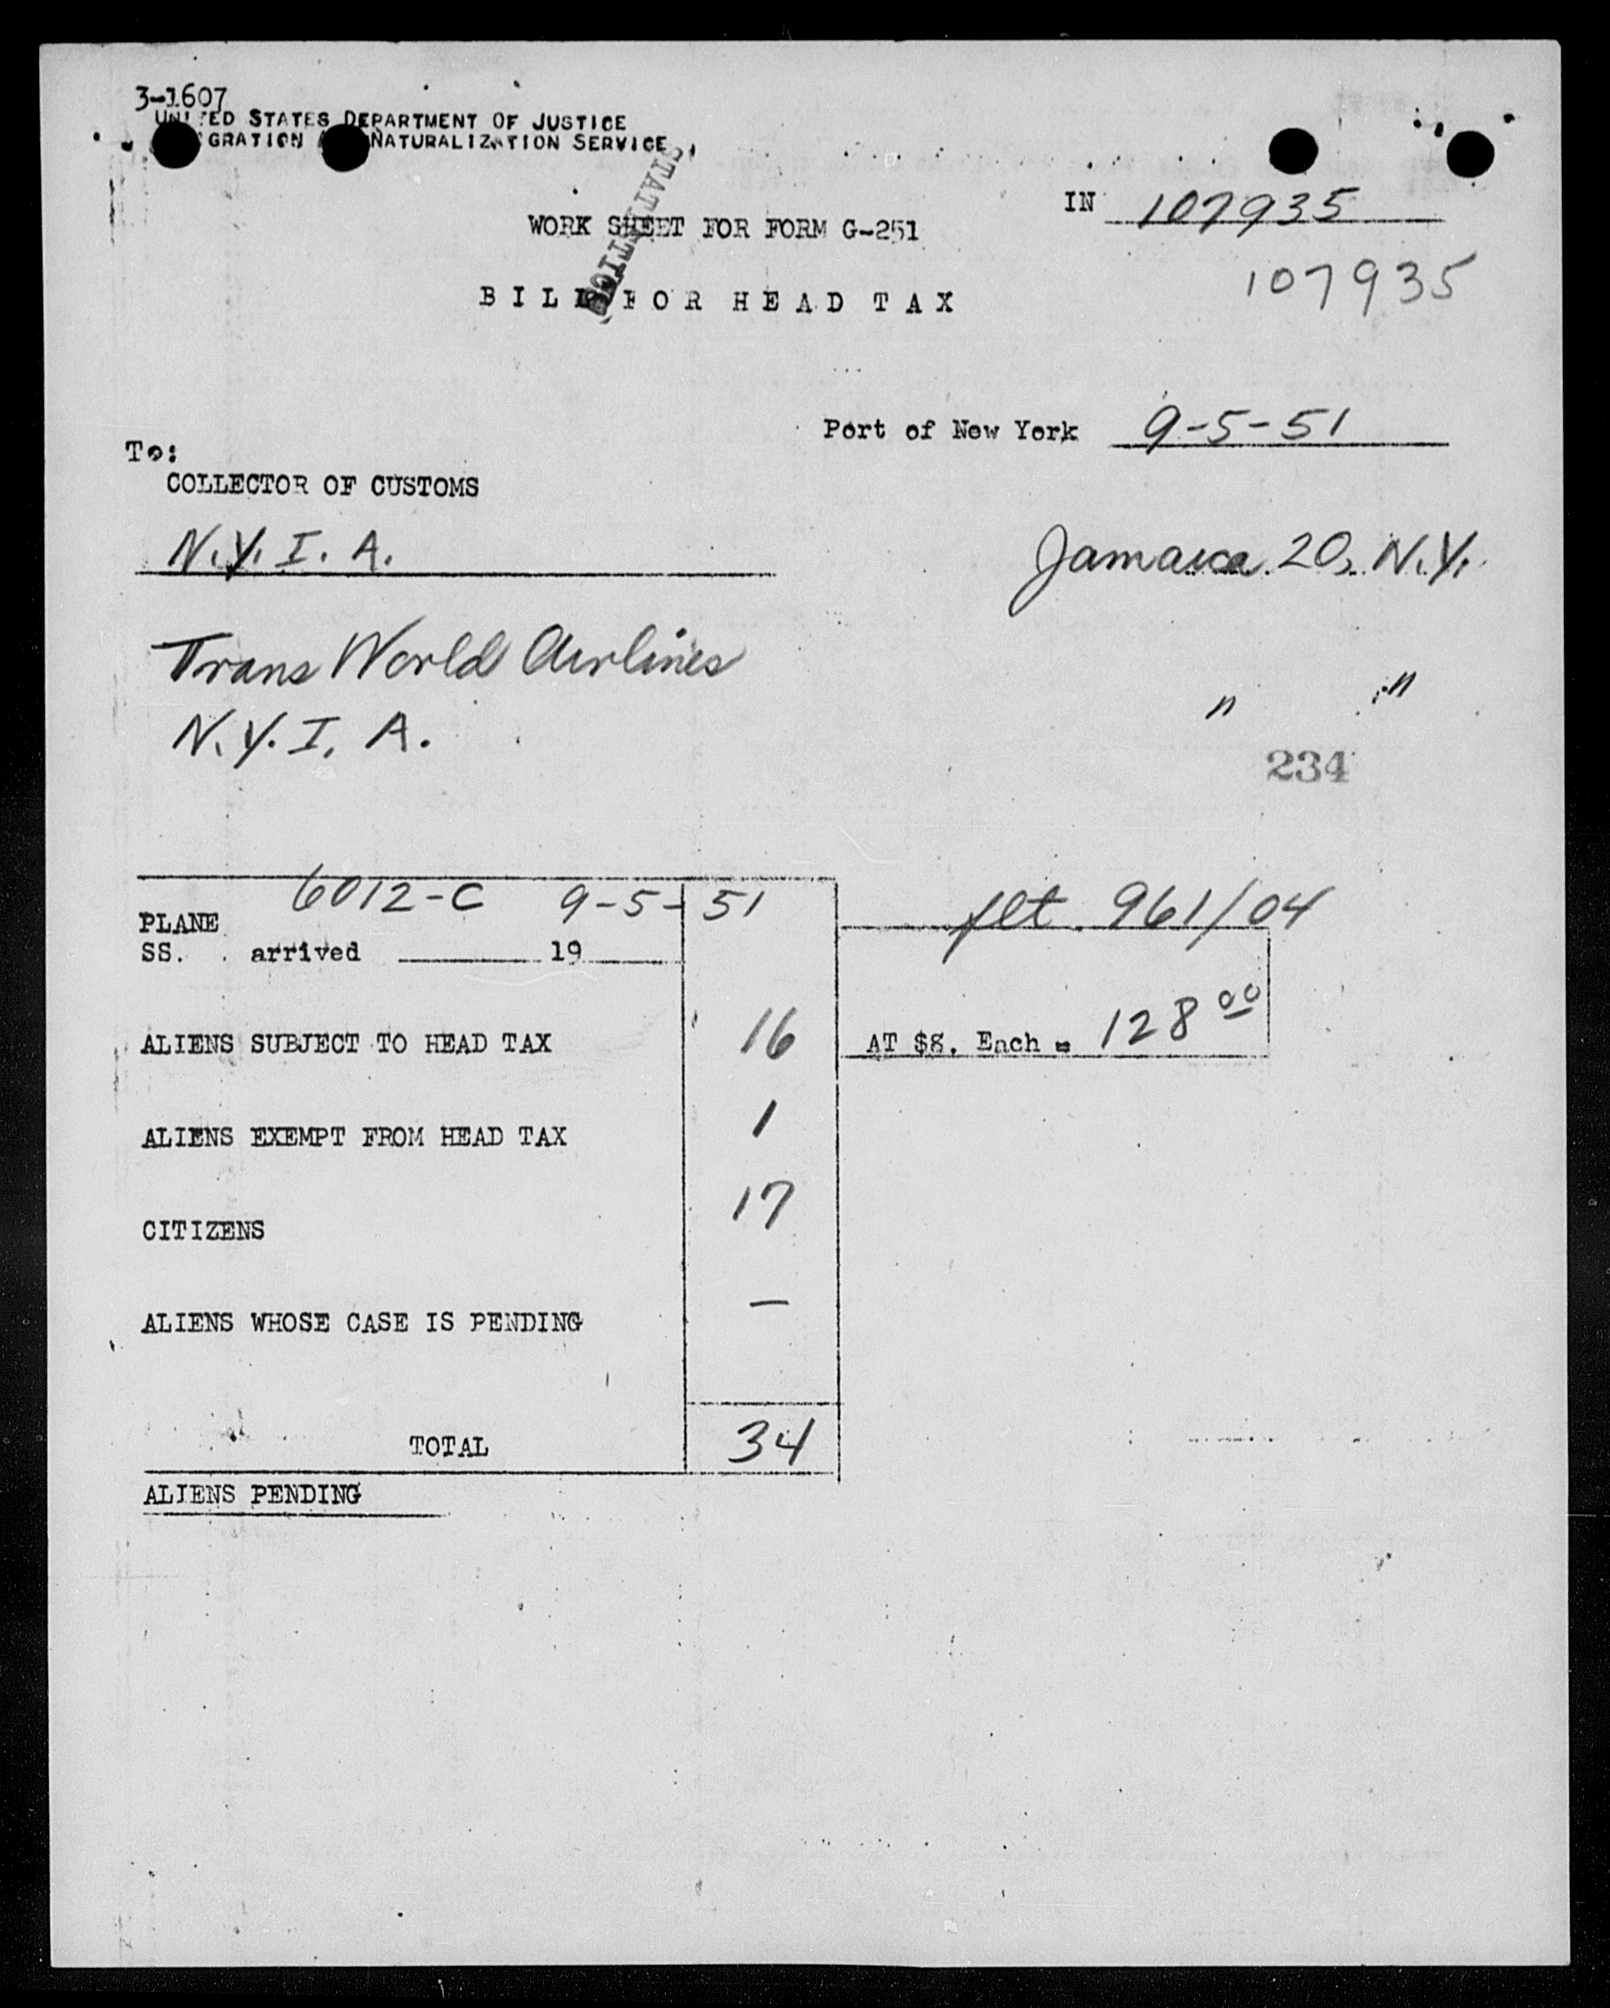 3-1607
UNITED STATES DEPARTMENT OF JUSTICE
GRATION NATURALIZATION SERVICE
STATISTICS
IN 107935
WORK SHEET FOR FORM G-251
107935
BILL FOR HEAD TAX
Port of New York 9-5-51
To:
COLLECTOR OF CUSTOMS
N.Y.I.A. Jamaica 20, N.Y.
Trans World Airlines
" "
N.Y.I.A.
234
6012-C 9-5-51 flt. 961/04
PLANE
SS. arrived 19
ALIENS SUBJECT TO HEAD TAX 16 AT $8. Each = 128 00
ALIENS EXEMPT FROM HEAD TAX 1
CITIZENS 17
ALIENS WHOSE CASE IS PENDING —
TOTAL 34
ALIENS PENDING